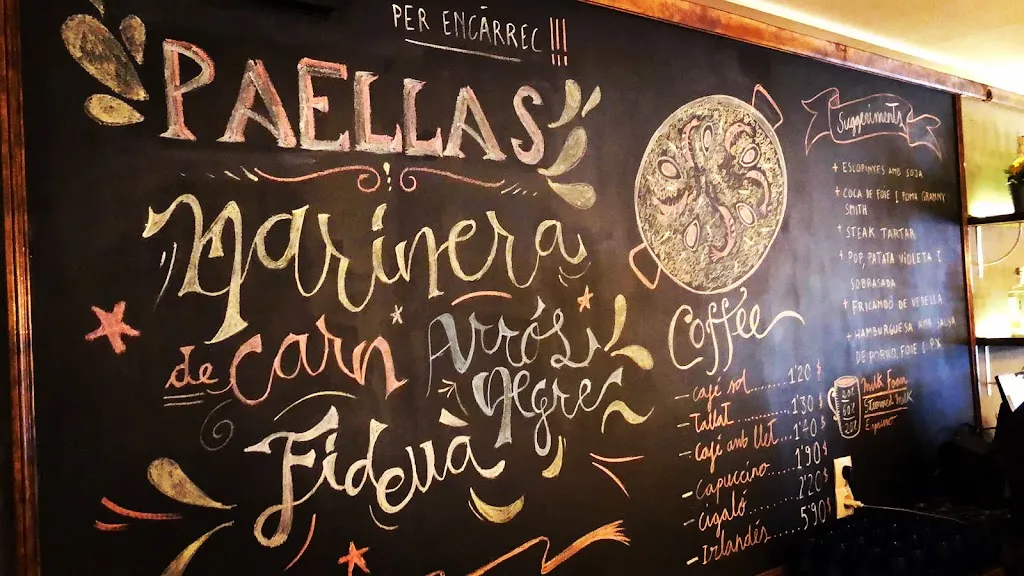 PER ENCÀRREC !!!
PAELLAS
Marinera
de carn
Arròs
Negre
Fideuà
Coffee
- café sol........ 1'20 $
- Tallat........... 1'30 $
- Café amb llet... 1'40 $
- capuccino..... 1'90 $
- cigaló......... 2'20 $
- Irlandés....... 5'90 $
Milk Foam
Steamed Milk
Espresso
Suggeriments
+ ESCOPINYES AMB SOJA
+ COCA DE FOIE I POMA GRANNY
SMITH
+ STEAK TARTAR
+ POP, PATATA VIOLETA I
SOBRASADA
+ FRICANDÓ DE VEDELLA
+ HAMBURGUESA AMB SALSA
DE PORTO, FOIE I